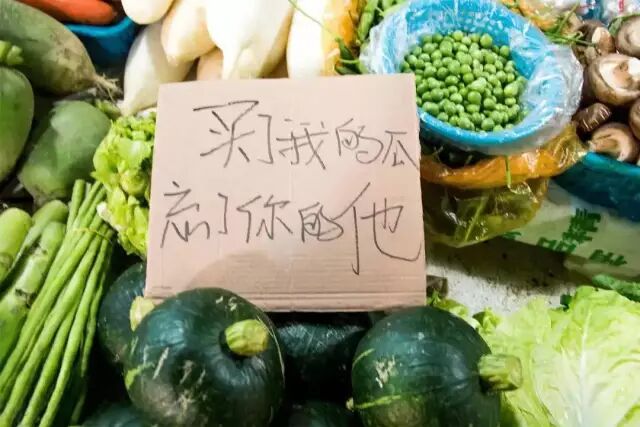 买了我的瓜
忘了你的他